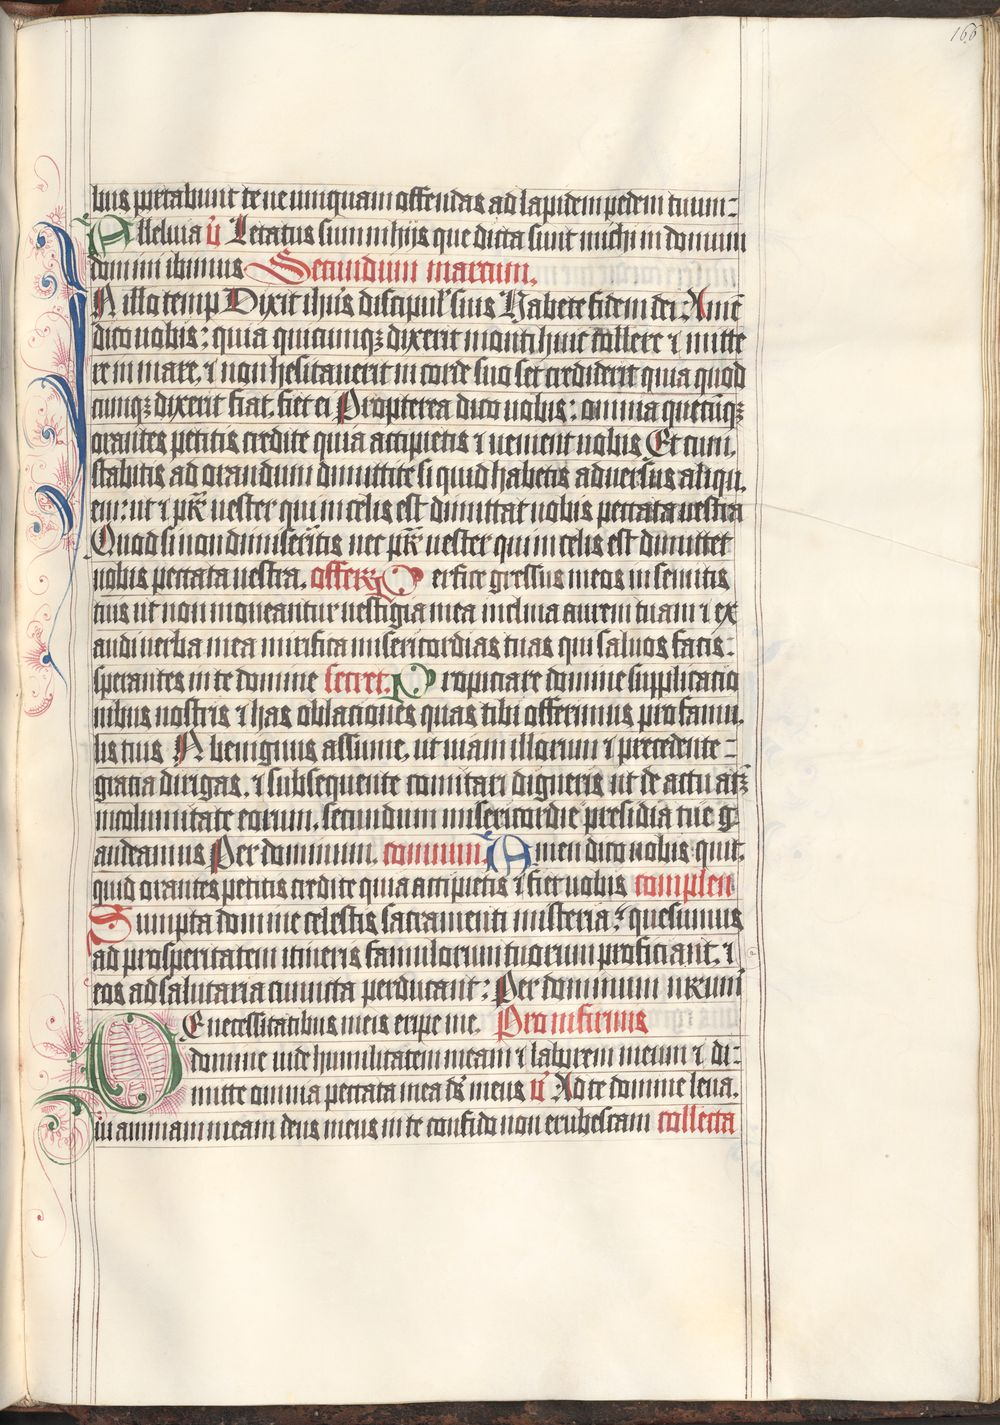 166
bus portabunt te ne umquam offendas ad lapidem pedem tuum:
Alleluia v̄ Letatus sum in hijs que dicta sunt michi in domum
domini ibimus Secundum marcum.
In illo temp Dixit ihūs discipul' suis Habete fidem dei. Amē
dico uobis: quia quicumqꝫ dixerit monti huic tollere ⁊ mitte
re in mare, ⁊ non hesitauerit in corde suo set crediderit quia quod
cumqꝫ dixerit fiat, fiet ei Propterea dico uobis: omnia quecūqꝫ
orantes petitis credite quia accipietis ⁊ uenient uobis Et cum.
stabitis ad orandum dimittite si quid habetis aduersus aliqu.
em: ut ⁊ pr̄ uester qui in celis est dimittat uobis peccata uestra
Quod si non dimiseritis nec pr̄ uester qui in celis est dimittet
uobis peccata uestra. offer Perfice gressus meos in semitis
tuis ut non moueantur uestigia mea inclina aurem tuam ⁊ ex
audi uerba mea mirifica misericordias tuas qui saluos facis:
sperantes in te domine secret. Propiciare domine supplicatio
nibus nostris ⁊ has oblationes quas tibi offerimus pro famu.
lis tuis N benignus assume, ut uiam illorum ⁊ precedente
gratia dirigas, ⁊ subsequente comitari digneris ut de actu atqꝫ
incolumitate eorum, secundum misericordie presidia tue g
audeamus Per dominum. comun. Amen dico uobis quic.
quid orantes petitis credite quia accipietis ⁊ fiet uobis complen
Sumpta domine celestis sacramenti misteria, quesumus
ad prosperitatem itineris famulorum tuorum proficiant, ⁊
eos ad salutaria cuncta perducant: Per dominum nr̄um
De necessitatibus meis eripe me. Pro infirmis
domine uide humilitatem meam ⁊ laborem meum ⁊ di:
mitte omnia peccata mea ds̄ meus v̄ Ad te domine leua.
ui animam meam deus meus in te confido non erubescam collecta